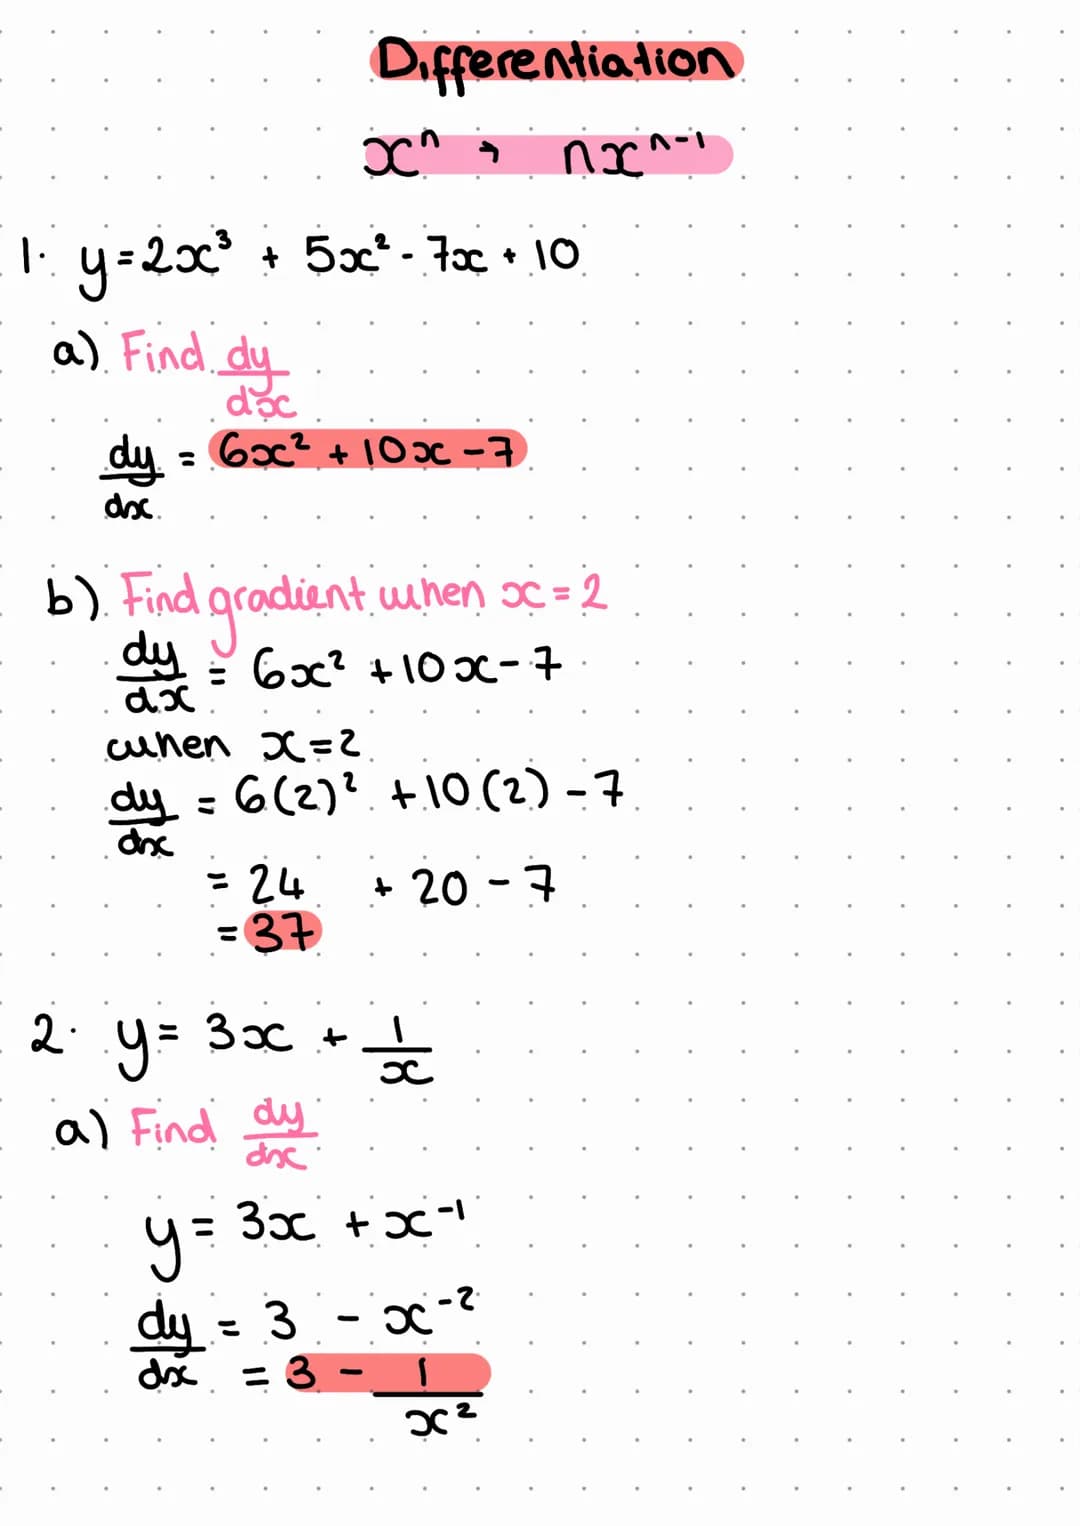 Differentiation
xⁿ → nxⁿ⁻¹
1. y = 2x³ + 5x² - 7x + 10
a) Find dy/dx
dy/dx = 6x² + 10x - 7
b) Find gradient when x = 2
dy/dx = 6x² + 10x - 7
when x = 2
dy/dx = 6(2)² + 10(2) - 7
= 24 + 20 - 7
= 37
2. y = 3x + 1/x
a) Find dy/dx
y = 3x + x⁻¹
dy/dx = 3 - x⁻²
= 3 - 1/x²